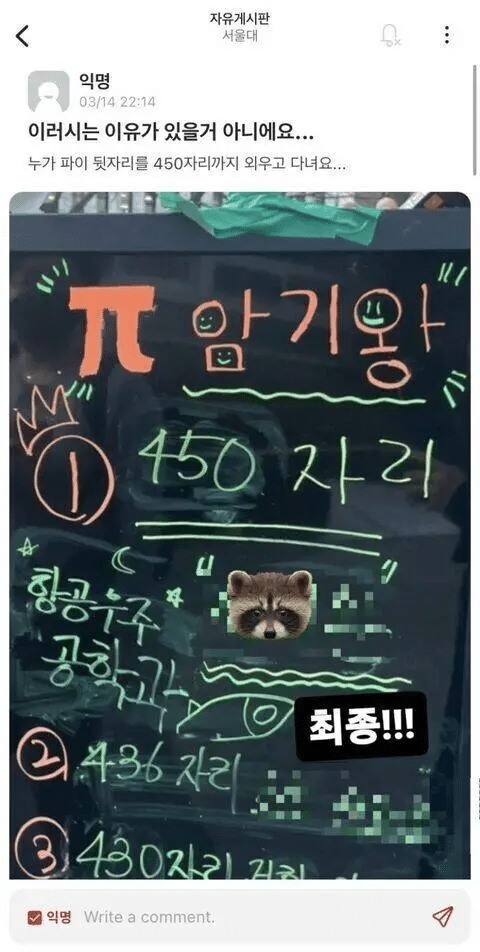 자유게시판
서울대
익명
03/14 22:14
이러시는 이유가 있을거 아니에요...
누가 파이 뒷자리를 450자리까지 외우고 다녀요...
π 암기왕
① 450 자리
항공우주
공학과
최종!!!
② 436 자리
③ 430자리
익명 Write a comment.